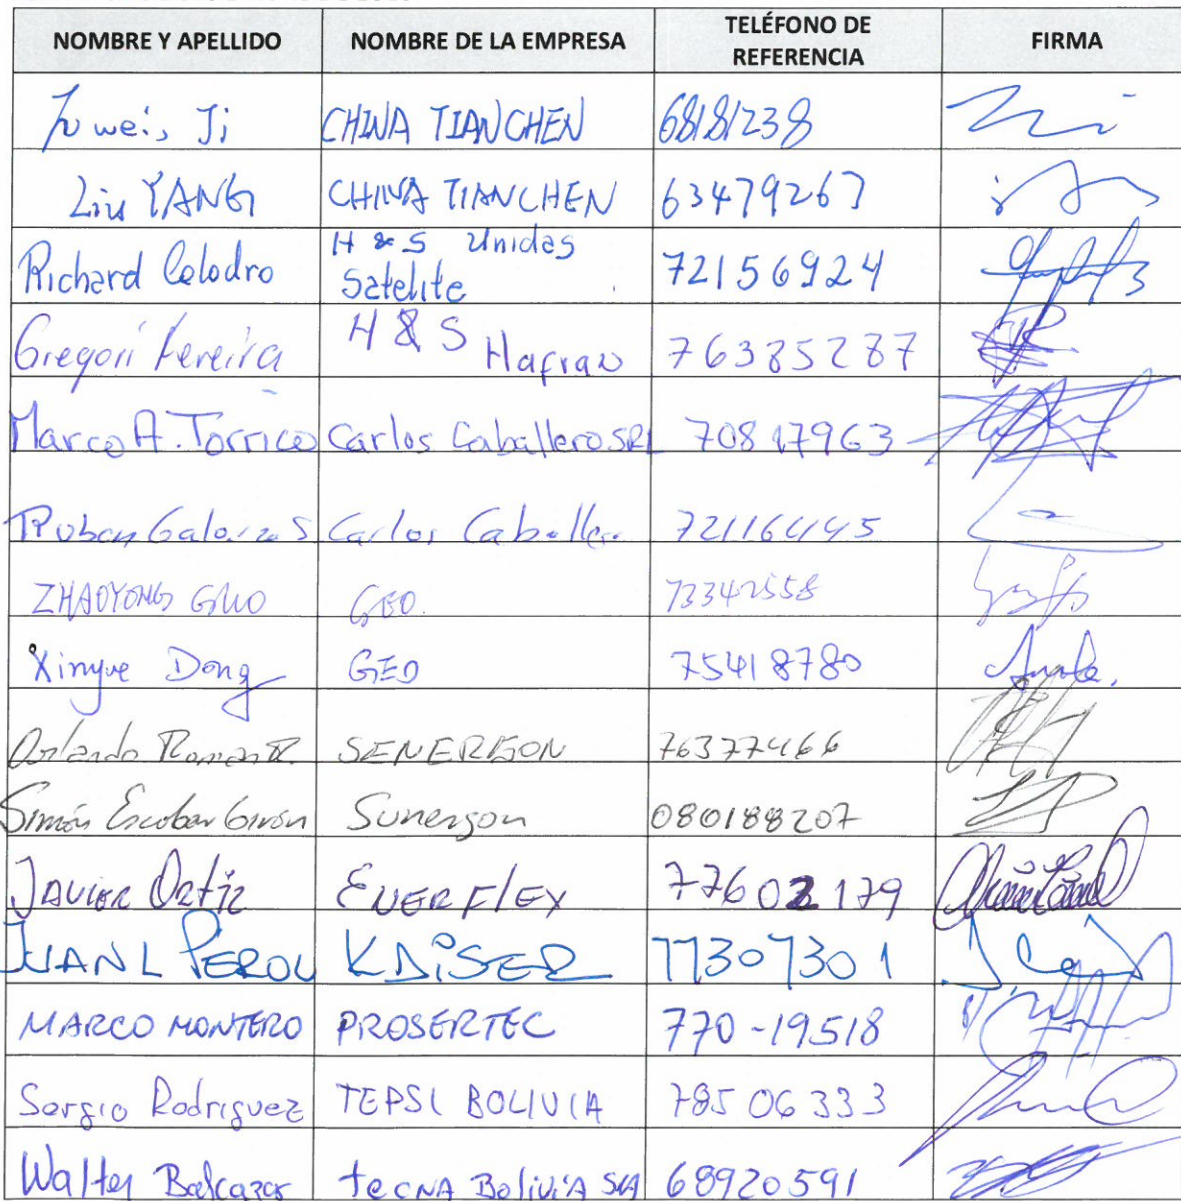 NOMBRE Y APELLIDO NOMBRE DE LA EMPRESA TELÉFONO DE REFERENCIA FIRMA
Ji CHINA TIANCHEN 68181238
Liu YANG CHINA TIANCHEN 63479267
Richard Celedro H & S Unidas Satelite 72156924
Gregori Pereira H & S Hafran 76385287
Marco A. Torrico Carlos Caballero SRL 70817963
Ruben S. Carlos Caballero 72116445
ZHAOYONG GUO GEO. 73342558
Xinyue Dong GEO 75418780
Orlando Roman R. SENERGON 76377466
Simón Escobar Girón Sunergon 080188207
JAVIER Ortiz ENERFLEX 77602179
JUAN L KAISER 77307301
MARCO MONTERO PROSERTEC 770-19518
Sergio Rodriguez TEPSI BOLIVIA 78506333
Walter Balcazar tecNA BoliviA SA 68920591